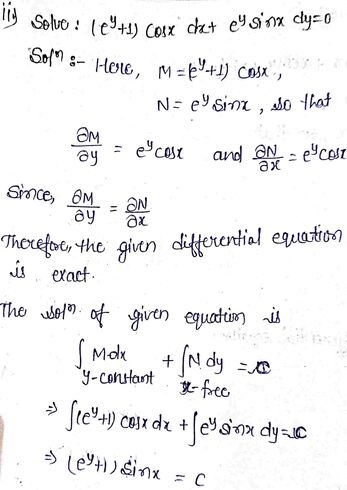 iii) Solve : (e^y+1) cosx dx + e^y sinx dy=0
Sol^n :- Here, M = (e^y+1) cosx,
N = e^y sinx, so that
∂M/∂y = e^y cosx and ∂N/∂x = e^y cosx
Since, ∂M/∂y = ∂N/∂x
Therefore, the given differential equation
is exact.
The sol^n of given equation is
∫ M·dx + ∫ N dy = C
y-constant x-free
⇒ ∫(e^y+1) cosx dx + ∫e^y sinx dy = C
⇒ (e^y+1) sinx = C